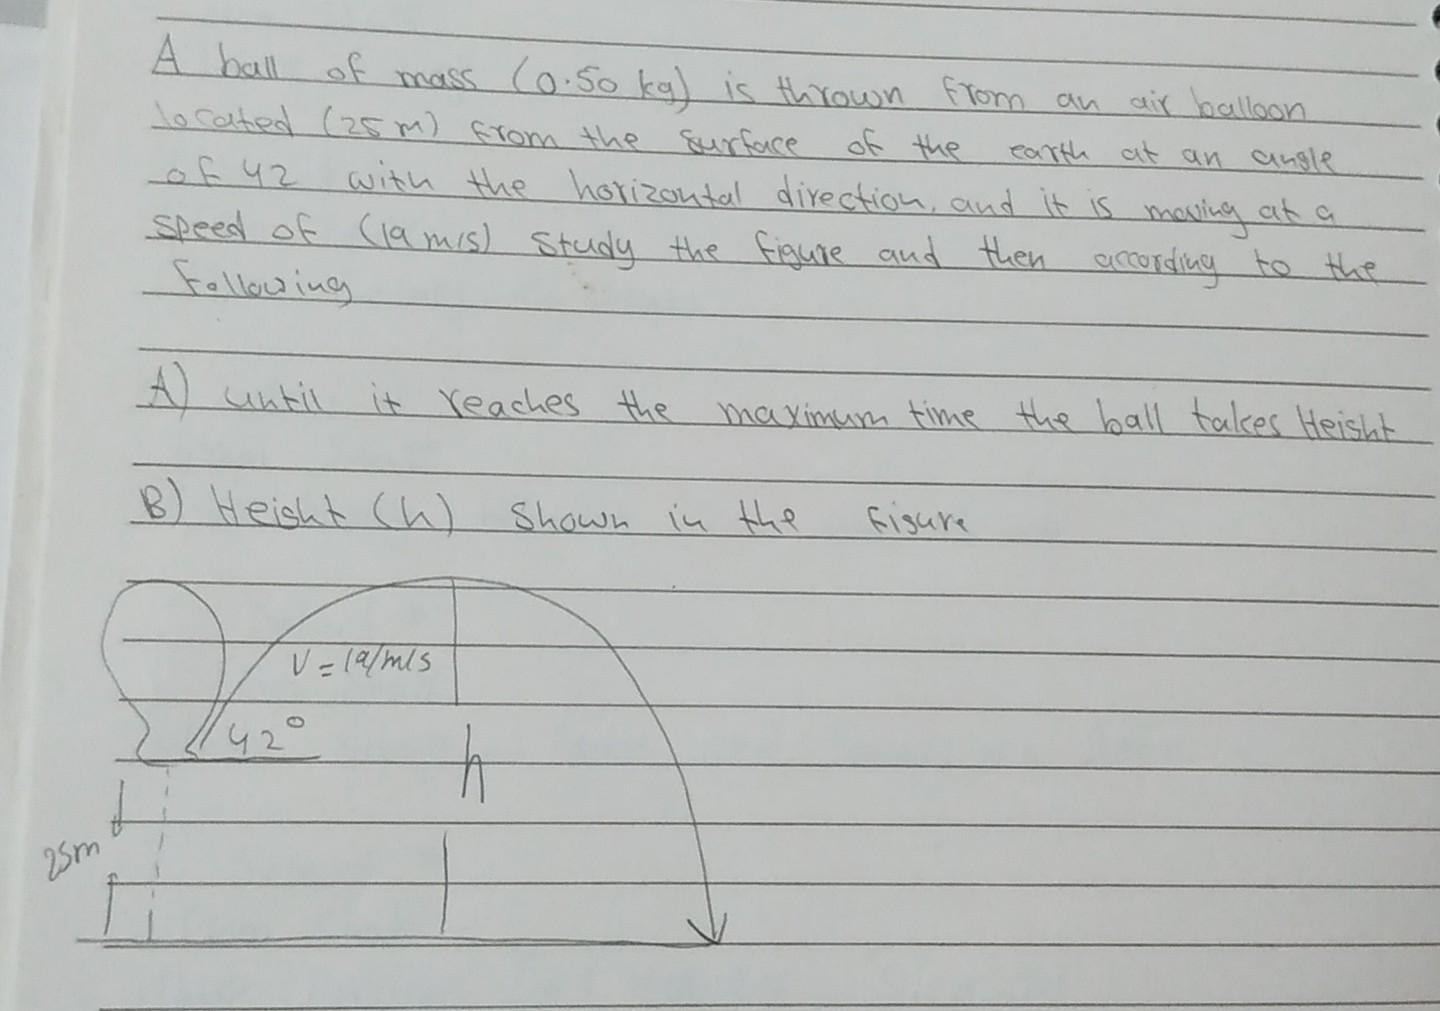 A ball of mass (0.50 kg) is thrown from an air balloon
located (25 m) from the surface of the earth at an angle
of 42 with the horizontal direction, and it is moving at a
speed of (19 m/s) study the figure and then according to the
following
A) until it reaches the maximum time the ball takes Height
B) Height (h) shown in the figure
V = 19/m/s
42°
h
25m